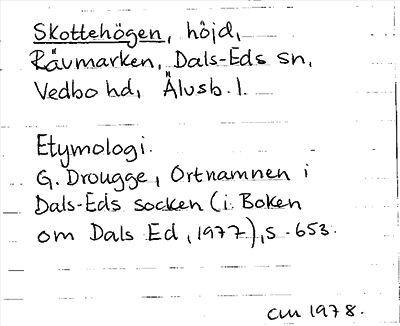 Skottehögen, höjd,
Rävmarken, Dals-Eds sn,
Vedbo hd, Älvsb. l.
Etymologi.
G. Drougge, Ortnamnen i
Dals-Eds socken (i Boken
om Dals Ed, 1977), s. 653.
CM 1978.